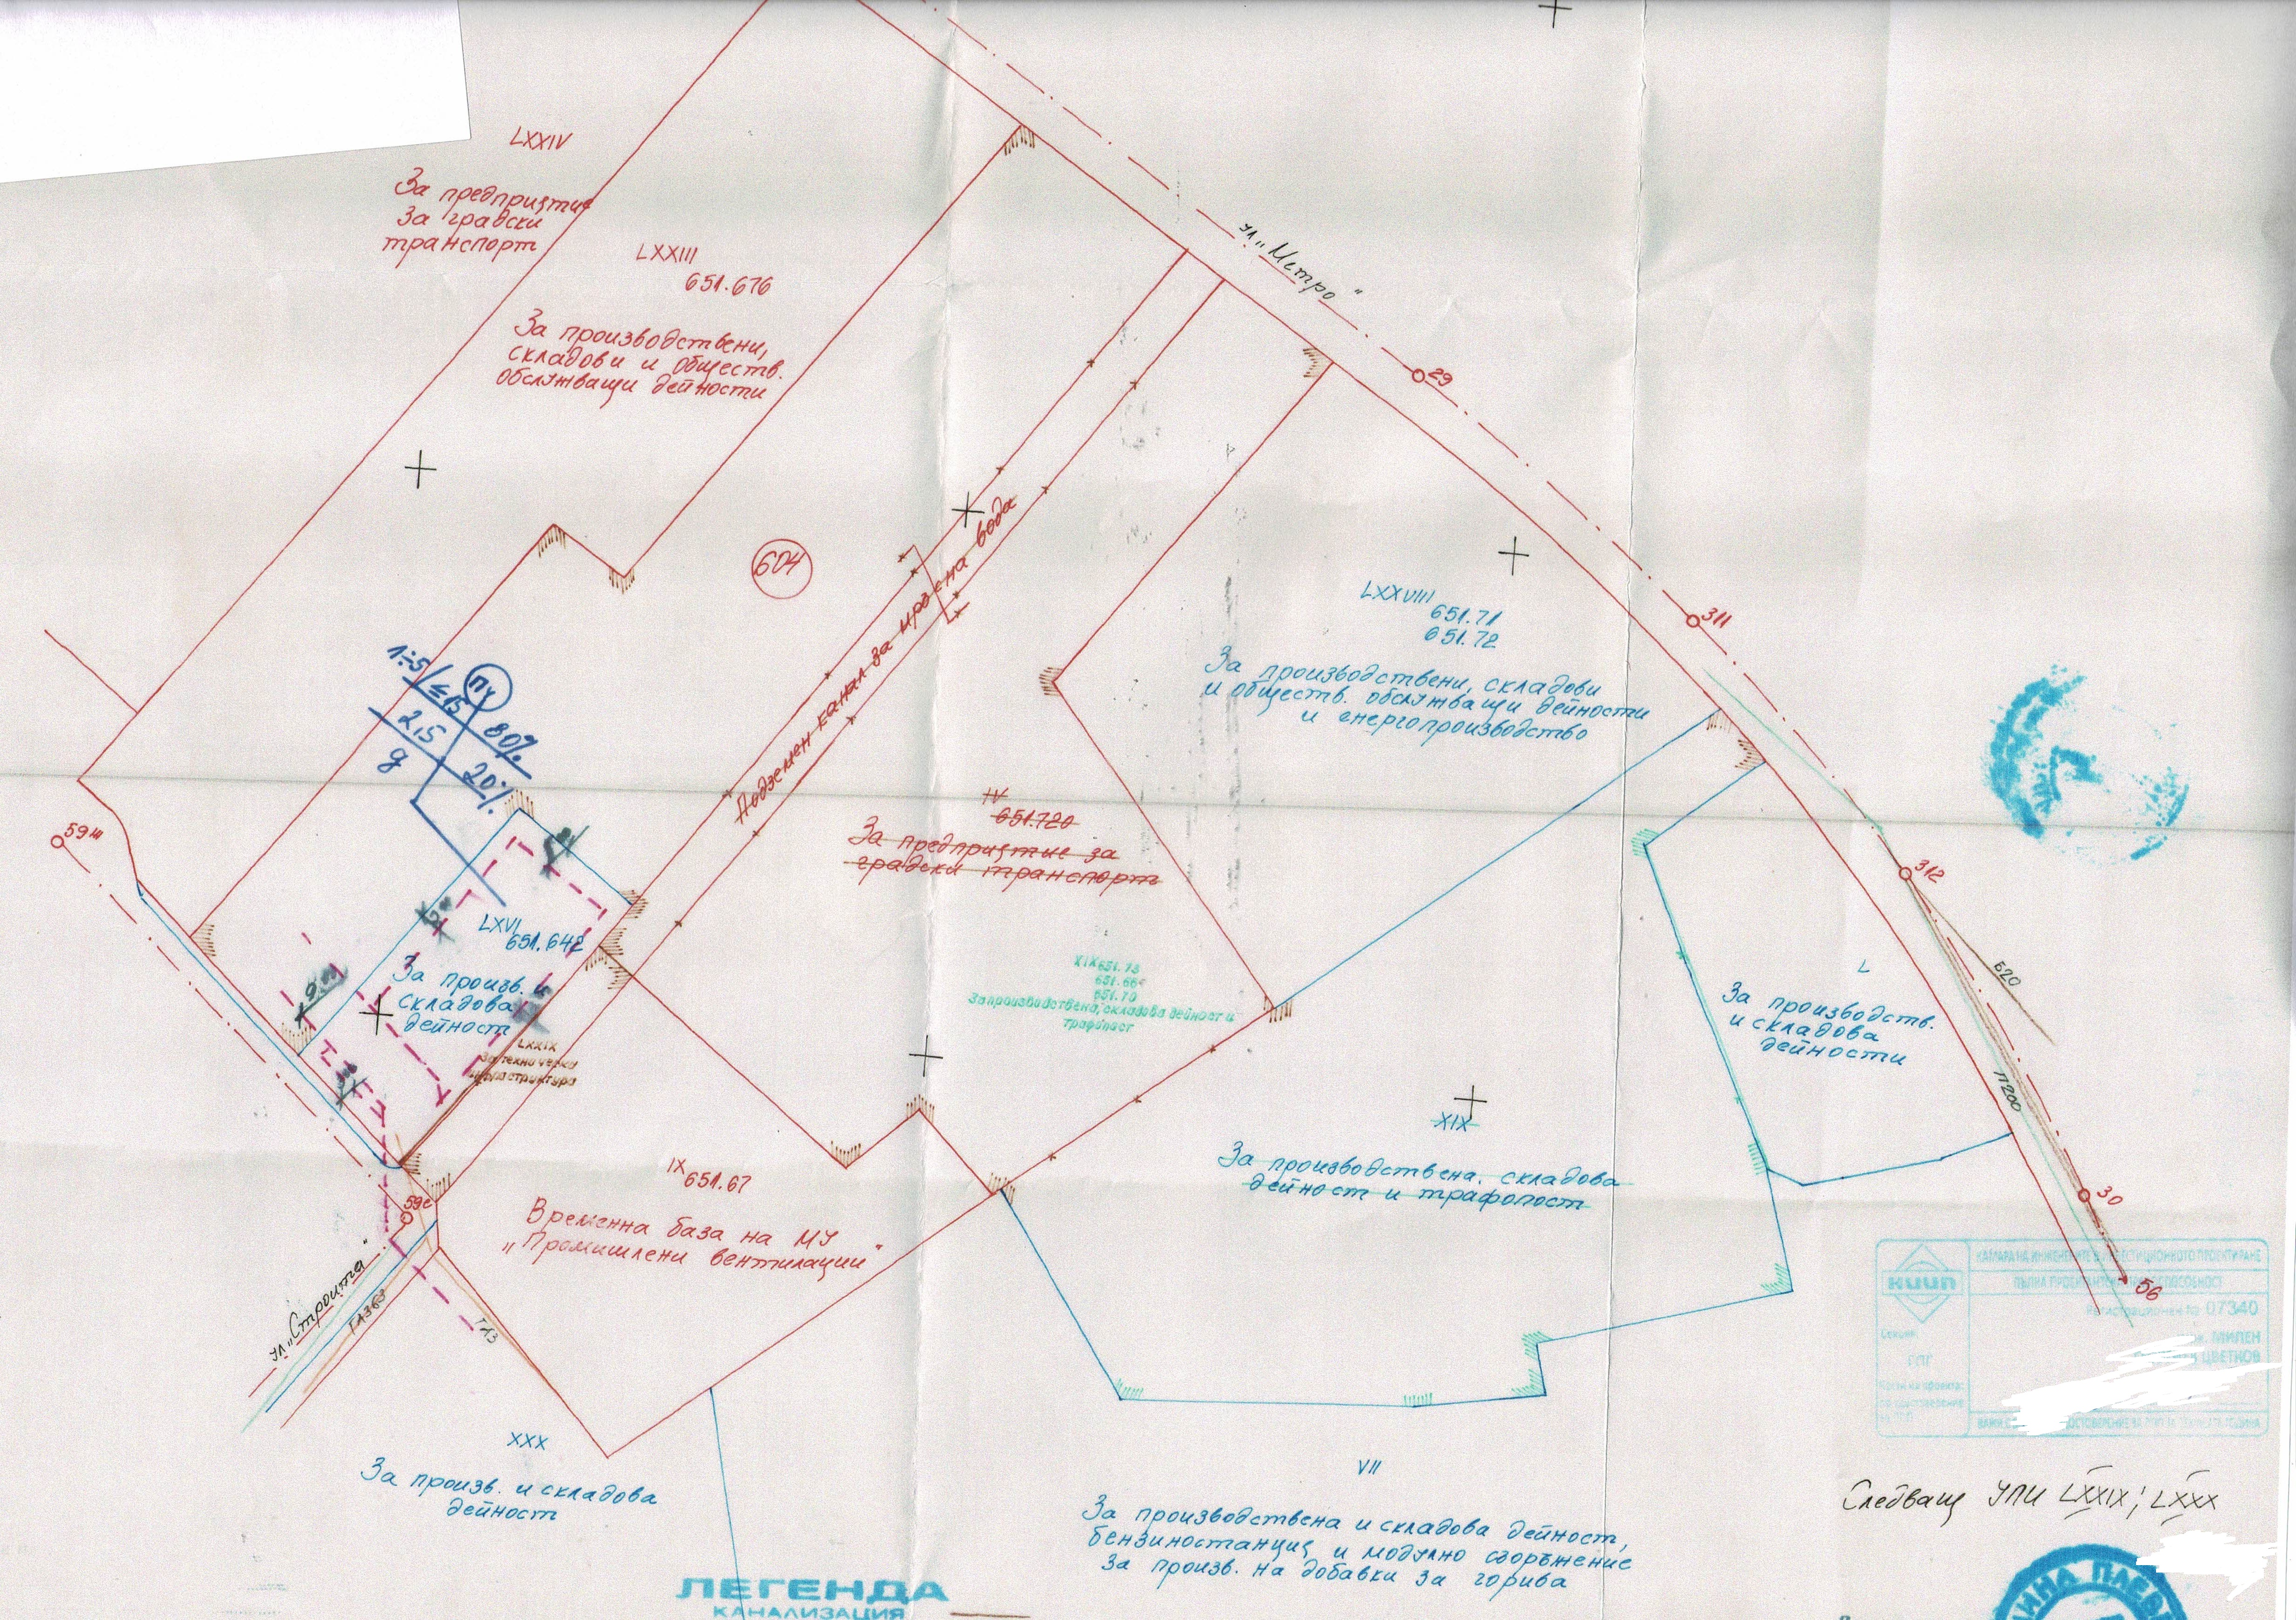 LXXIV
За предприятие
За градски
транспорт
LXXIII
651.676
За производствени,
складови и обществ.
обслужващи дейности
ул. "Метро"
29
604
311
LXXVIII
651.71
651.72
За производствени, складови
и обществ. обслужващи дейности
и енергопроизводство
Подземен канал за мръсна вода
1÷5/≤15
ПЧ
80%
2,5
20%
g
59ш
IV
651.720
За предприятие за
градски транспорт
312
LXVI
651.642
За произв. и
складова
дейност
XIX 651.73
651.66
651.70
За производствена, складова дейност и
трафопост
L
За производств.
и складова
дейности
620
П200
LXXIX
За техническа
инфраструктура
XIX
За производствена, складова
дейност и трафопост
IX 651.67
Временна база на МУ
"Промишлени вентилации"
59с
30
56
ул. "Строител"
ГЛ3
КАМАРА НА ИНЖЕНЕРИТЕ В ИНВЕСТИЦИОННОТО ПРОЕКТИРАНЕ
КИИП
ПЪЛНА ПРОЕКТАНТСКА ПРАВОСПОСОБНОСТ
Регистрационен № 07340
Секция:
МИЛЕН
ЦВЕТКОВ
XXX
За произв. и складова
дейност
VII
За производствена и складова дейност,
бензиностанция и модулно съоръжение
За произв. на добавки за горива
Следващ УПИ LXXIX; LXXX
ЛЕГЕНДА
КАНАЛИЗАЦИЯ